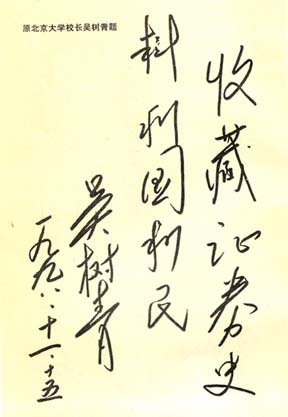 原北京大学校长吴树青题
收藏证券史
料利国利民
吴树青
一九九八.十一.十五